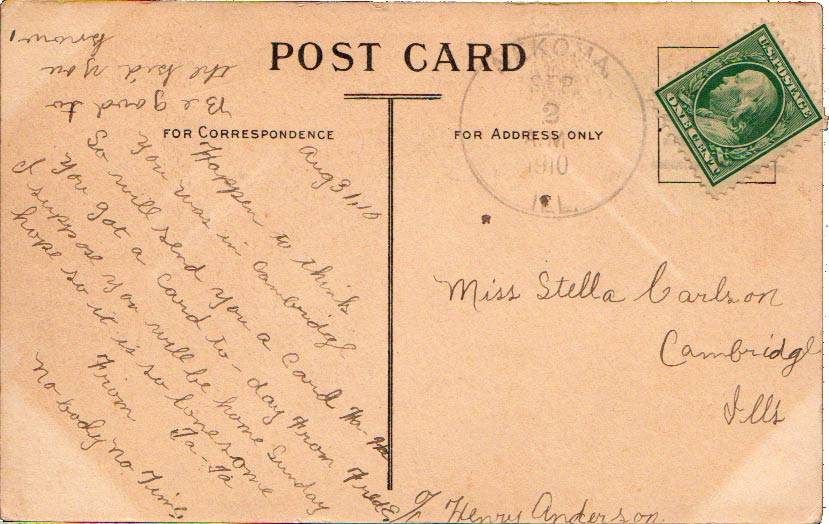 POST CARD
FOR CORRESPONDENCE
FOR ADDRESS ONLY
Aug 31, 10
Happen to think
you was in Cambridge
So will send you a card Ha-Ha
You got a card to-day from Fred E,
I suppose you will be home Sunday
hope so it is so lonesome
From Ta-Ta
No body no Time
Be good to
the kid you
know!
KOMA,
SEP
2
A.M
1910
ILL.
U.S. POSTAGE
ONE CENT
Miss Stella Carlson
Cambridge
Ills
c/o Henry Anderson